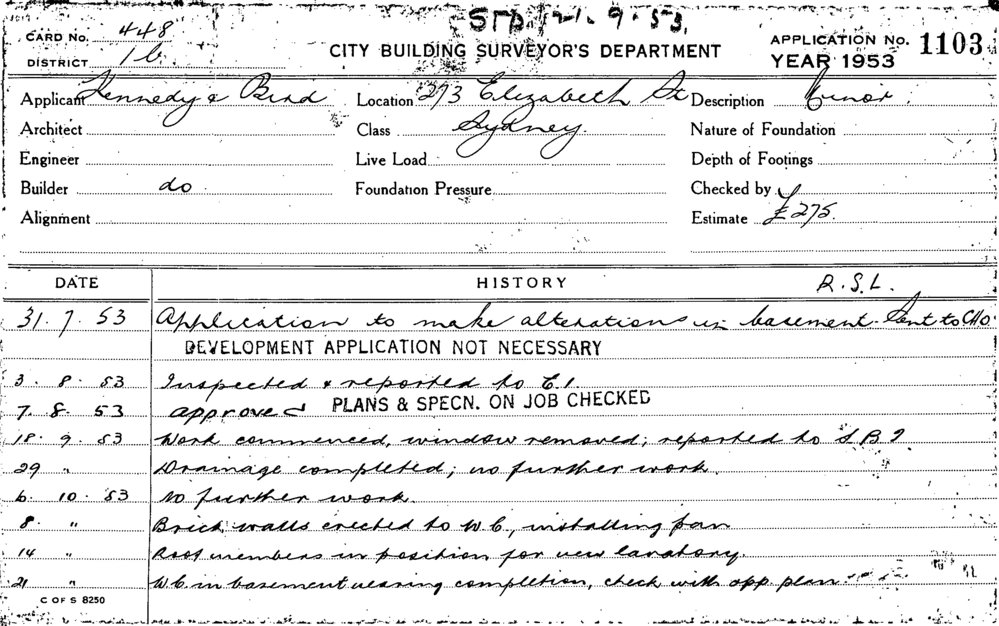 STD. 21.9.53.
CARD No. 448
DISTRICT 1b
CITY BUILDING SURVEYOR'S DEPARTMENT
APPLICATION No. 1103
YEAR 1953
Applicant Kennedy & Bird Location 273 Elizabeth St Description Minor.
Architect Class Sydney. Nature of Foundation
Engineer Live Load Depth of Footings
Builder do Foundation Pressure Checked by
Alignment Estimate £275.
DATE HISTORY R.S.L.
31. 7. 53 Application to make alterations in basement. Sent to CHO.
DEVELOPMENT APPLICATION NOT NECESSARY
3. 8. 53 Inspected & reported to C.I.
7. 8. 53 approved PLANS & SPECN. ON JOB CHECKED
18. 9. 53 Work commenced, window removed; reported to S.B.I
29 " Drainage completed; no further work.
6. 10. 53 No further work
8. " Brick walls erected to W C, installing pan
14 " Roof members in position for new lavatory.
21 " W C in basement nearing completion, check with app. plan
C OF S 8250